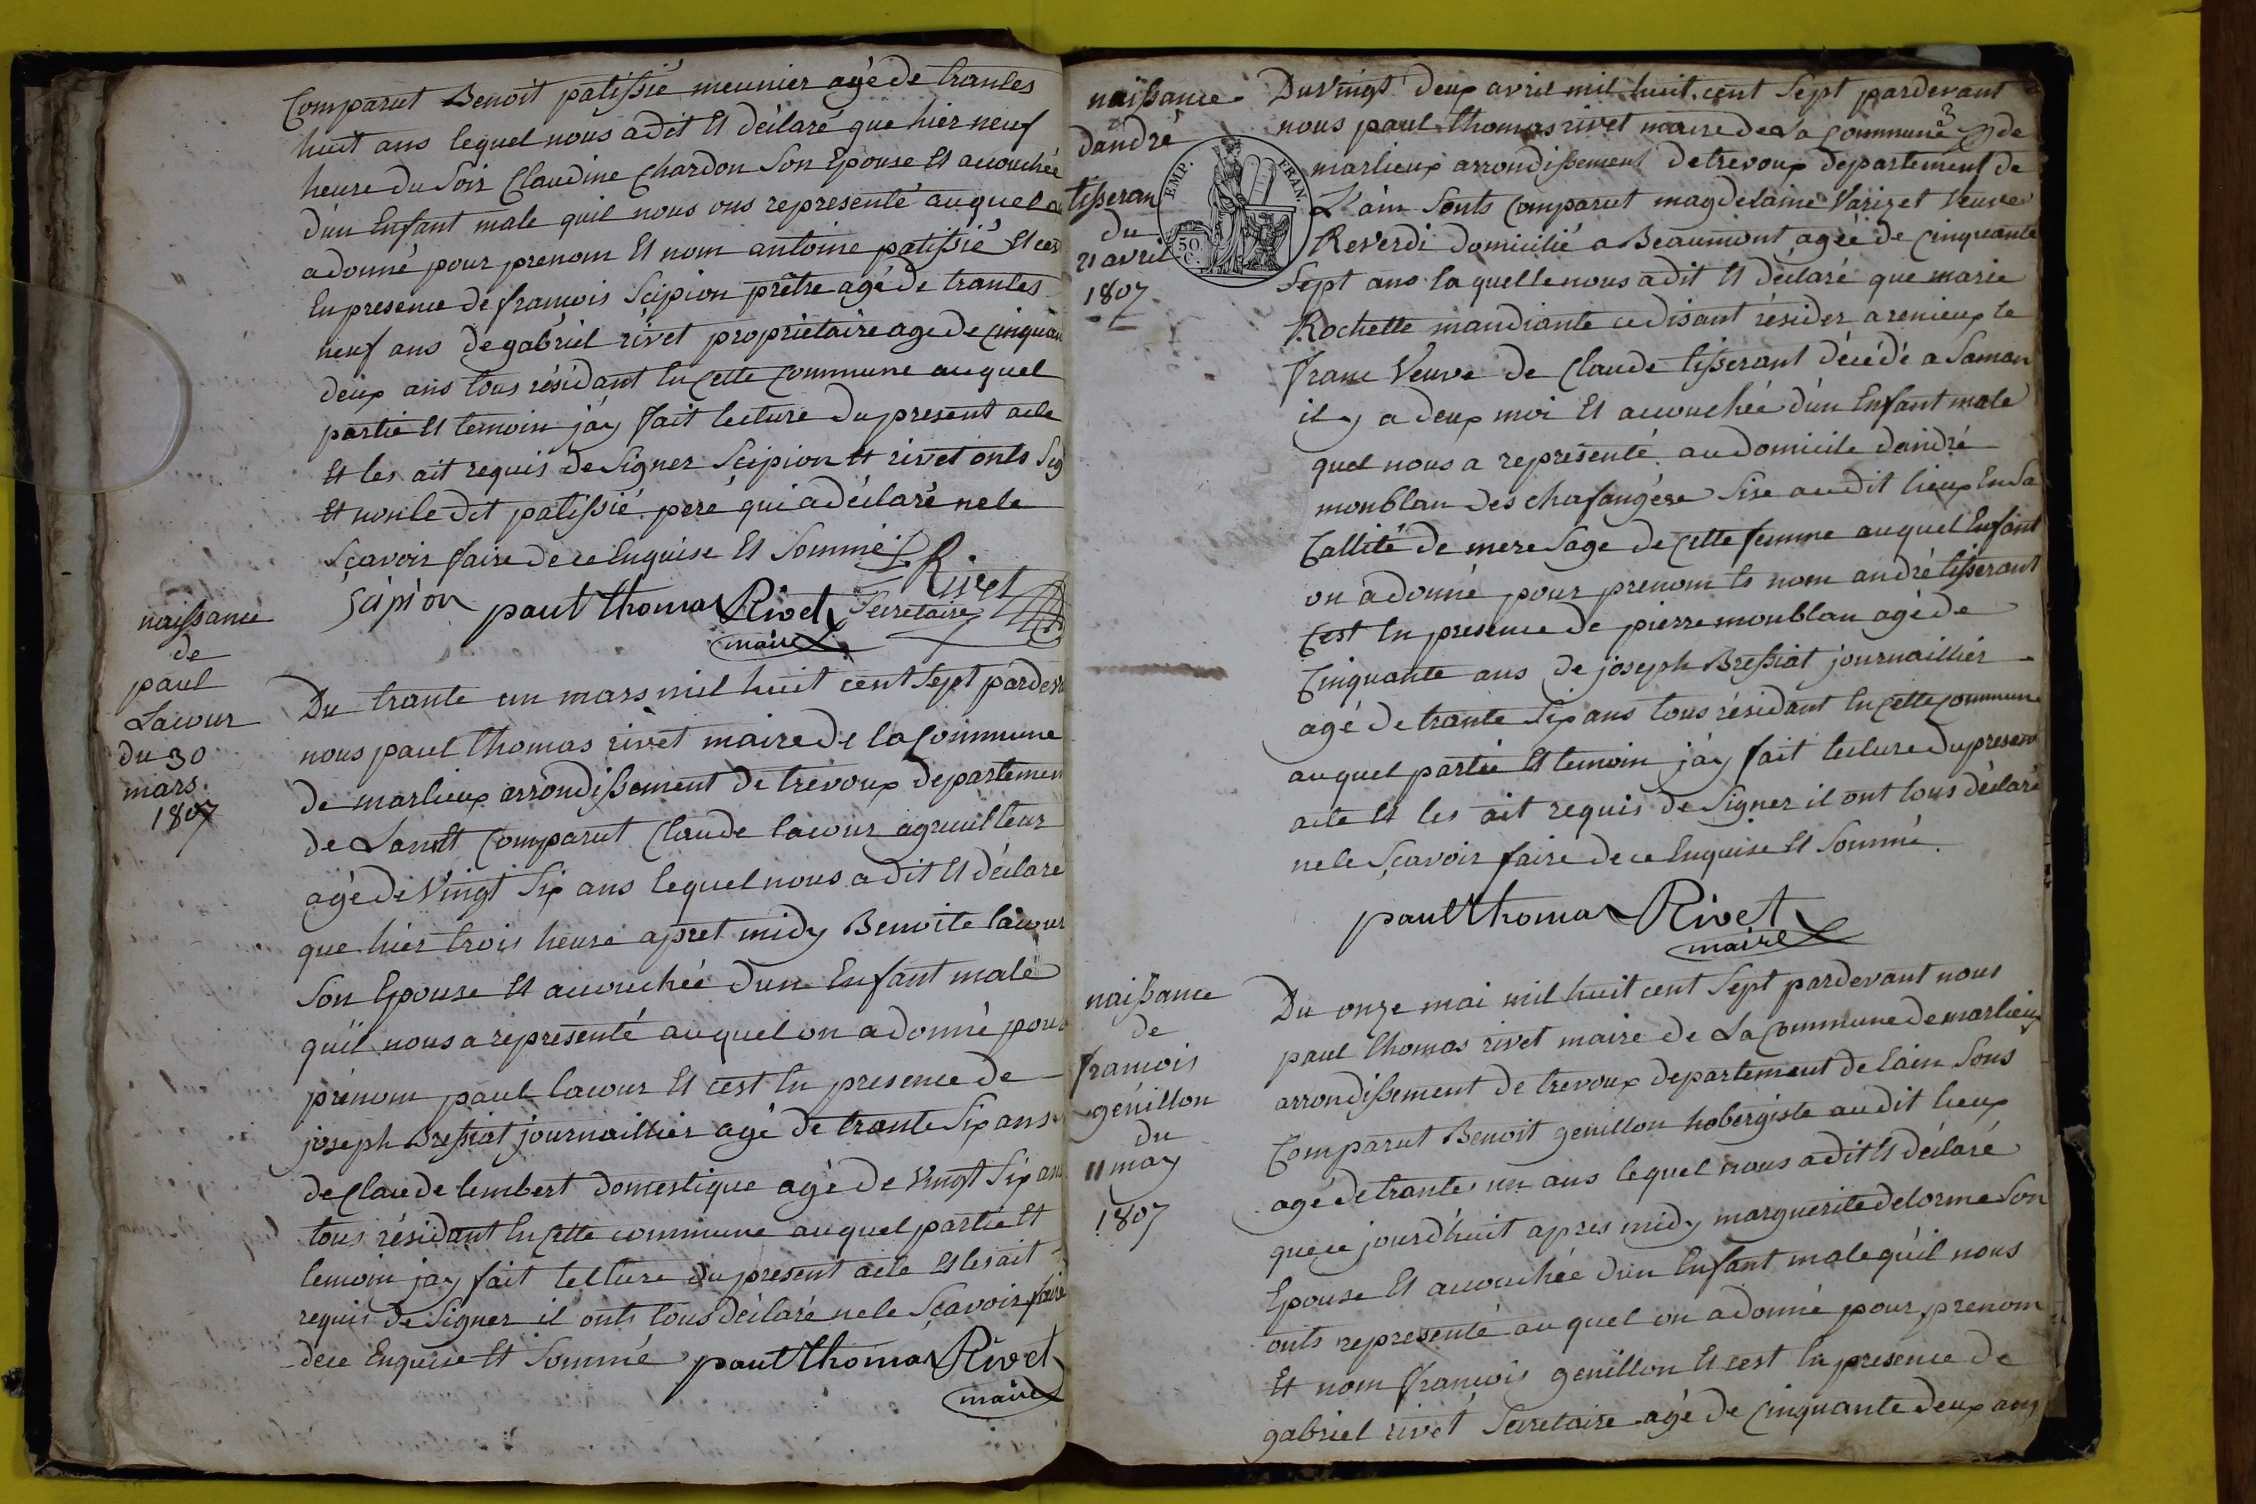 Comparut Benoit patissié meunier agé de trantes
huit ans lequel nous a dit Et déclaré que hier neuf
heure du soir Claudine Chardon Son Epouse Et acouchée
d'un Enfant male quil nous ons representé auquel on
a donné pour prenom Et nom antoine patissié Et ces
En presence de francois Scipion prêtre agé de trantes
neuf ans de gabriel rivet proprietaire age de Cinquan
deux ans tous résidant En Cette Commune auquel
partie Et temoin jáy fait lecture du present acte
Et les ait requis de Signer Scipion Et rivet onts Sig
Et non le dit patissié peré qui a déclaré ne le
Sçavoir faire de ce Enquise Et Sommé
Rivet
Scipion paul thomas Rivet Secretaire
maire
naissance
de
paul
Lacour
du 30
mars
1807
Du trante un mars mil huit cent Sept pardev
nous paul thomas rivet maire de la Commune
de marlieux arrondissement de trevoux departemen
de Comparut Claude lacour agriculteur
agé de Vingt Six ans lequel nous a dit Et déclaré
que hier trois heure apret midy Benoite lacour
Son Epouse Et acouchée d'un Enfant malé
qúil nous a representé auquel on a donné pour
prénom paul lacour Et c'est En presence de
joseph Bressiat journaillier agé de trante Six ans
de Claude lembert domestique agé de Vingt Six ans
tous résidant En Cette commune auquel partie Et
temoin jay fait lecture du present acte Et les ait
requis de Signer il onts tous déclaré ne le Sçavoir faire
de ce Enquise Et Sommé paul thomas Rivet
maire
naissance
dandré
tisseran
du
21 avril
1807
EMP. FRAN.
50 C.
Du Vingt deux avril mil huit cent Sept pardevant
nous paul thomas rivet maire de La Commune de
marlieux arrondissement de trevoux departement de
L'ain Sonts Comparut magdelaine Varizet Veuve
Reverdi domicilié a Beaumont agée de Cinquante
Sept ans laquelle nous a dit Et déclaré que marie
Rochette mandiante ce disant résider a renieux le
franc Veuve de Claude tisserant décédé a Saman
il y a deux moi Et acouchée d'un Enfant male
quel nous a representé au domicile dandré
monblan des chafangére Sise audit lieux En Sa
Callité de mere Sage de Cette femme auquel Enfant
on a donné pour prenom Et nom andré tisserant
C'est En presence de pierre monblan agé de
Cinquante ans de joseph Bressiat journaillier
agé de trante Six ans tous résidant En Cette Commune
auquel partie Et temoin jáy fait lecture du present
acte Et les ait requis de Signer il ont tous déclaré
ne le Sçavoir faire de ce Enquise Et Sommé.
paul thomas Rivet
maire
naissance
de
francois
génillon
du
11 may
1807
Du onze mai mil huit cent Sept pardevant nous
paul thomas rivet maire de La Commune de marlieux
arrondissement de trevoux departement de lain Sons
Comparut Benoit genillon hobergiste audit lieux
agé de trantes un ans lequel nous a dit Et déclaré
que ce jourd'huit apres midy marguerite delorme Son
Epouse Et acouchée d'un Enfant male qu'il nous
onts representé auquel on a donné pour prenom
Et nom francois genillon Et cest En presence de
gabriel rivet Secretaire agé de Cinquante deux ans